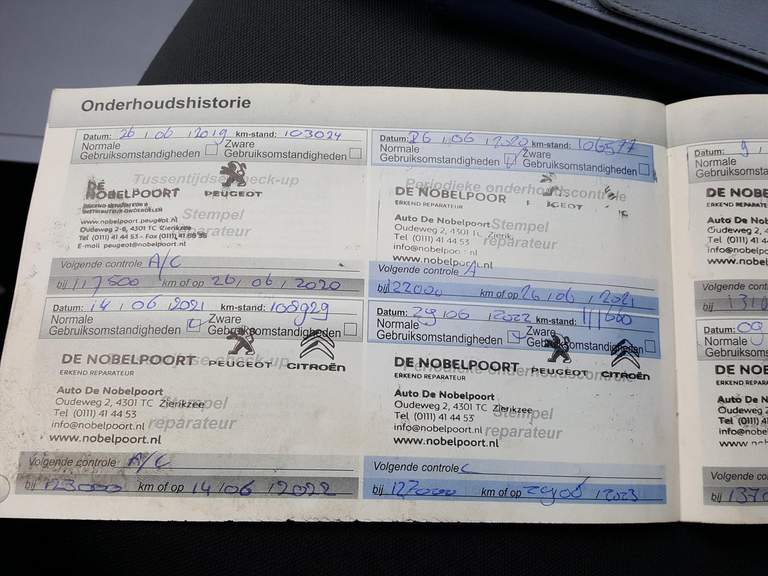 Onderhoudshistorie
Datum: 26/06/2019 km-stand: 103024
Normale Gebruiksomstandigheden
Zware Gebruiksomstandigheden
Tussentijdse check-up
DE NOBELPOORT PEUGEOT
Stempel
www.nobelpoort.peugeot.nl
Oudeweg 2-6, 4301 TC Zierikzee
Tel (0111) 41 44 53 - Fax (0111) 41
reparateur
E-mail peugeot@nobelpoort.nl
Volgende controle A/C
bij 117500 km of op 26/06/2020
Datum: 26/06/2020 km-stand: 106577
Normale Gebruiksomstandigheden
Zware Gebruiksomstandigheden
Periodieke onderhoudscontrole
DE NOBELPOOR PEUGEOT
ERKEND REPARATEUR
Auto De Nobelpoort Stempel
Oudeweg 2, 4301 TC Zierik
Tel (0111) 41 44 53 reparateur
info@nobelpoort.nl
www.nobelpoort.nl
Volgende controle A
bij 122000 km of op 26/06/2021
Datum: 14/06/2021 km-stand: 108929
Normale Gebruiksomstandigheden
Zware Gebruiksomstandigheden
Tussentijdse check-up
DE NOBELPOORT PEUGEOT CITROËN
ERKEND REPARATEUR
Auto De Nobelpoort
Oudeweg 2, 4301 TC Zierikzee
Stempel
Tel (0111) 41 44 53
info@nobelpoort.nl reparateur
www.nobelpoort.nl
Volgende controle A/C
bij 123000 km of op 14/06/2022
Datum: 29/06/2022 km-stand: 111600
Normale Gebruiksomstandigheden
Zware Gebruiksomstandigheden
Periodieke onderhoudscontrole
DE NOBELPOORT PEUGEOT CITROËN
ERKEND REPARATEUR
Auto De Nobelpoort
Oudeweg 2, 4301 TC Zierikzee
Stempel
Tel (0111) 41 44 53
info@nobelpoort.nl reparateur
www.nobelpoort.nl
Volgende controle C
bij 127000 km of op 29/06/2023
Datum: 9
Normale
Gebruiksom
DE NOBE
ERKEND REPARAT
Auto De No
Oudeweg 2,
Tel (0111) 41
info@nobe
www.nobe
Volgende cont
bij 1310
Datum: 00
Normale
Gebruiksom
DE NOBE
ERKEND REPARAT
Auto De No
Oudeweg 2
Tel (0111) 41
info@nobe
Volgende cont
bij 1370